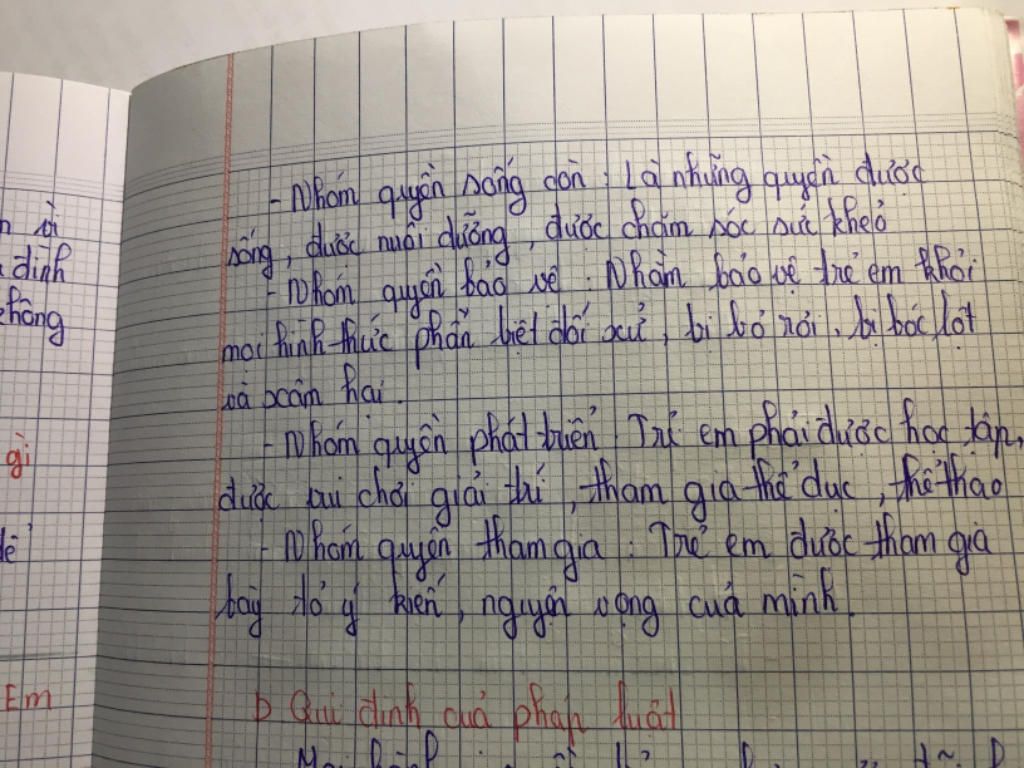 - Nhóm quyền sống còn : Là những quyền được
sống, được nuôi dưỡng, được chăm sóc sức khẻo
- Nhóm quyền bảo vệ : Nhằm bảo vệ trẻ em khỏi
mọi hình thức phân biệt đối xử, bị bỏ rơi, bị bóc lột
và xâm hại.
- Nhóm quyền phát triển : Trẻ em phải được học tập,
được vui chơi giải trí, tham gia thể dục, thể thao
- Nhóm quyền tham gia : Trẻ em được tham gia
bày tỏ ý kiến, nguyện vọng của mình.
b Qui định của pháp luật
đình
không
gì
Em